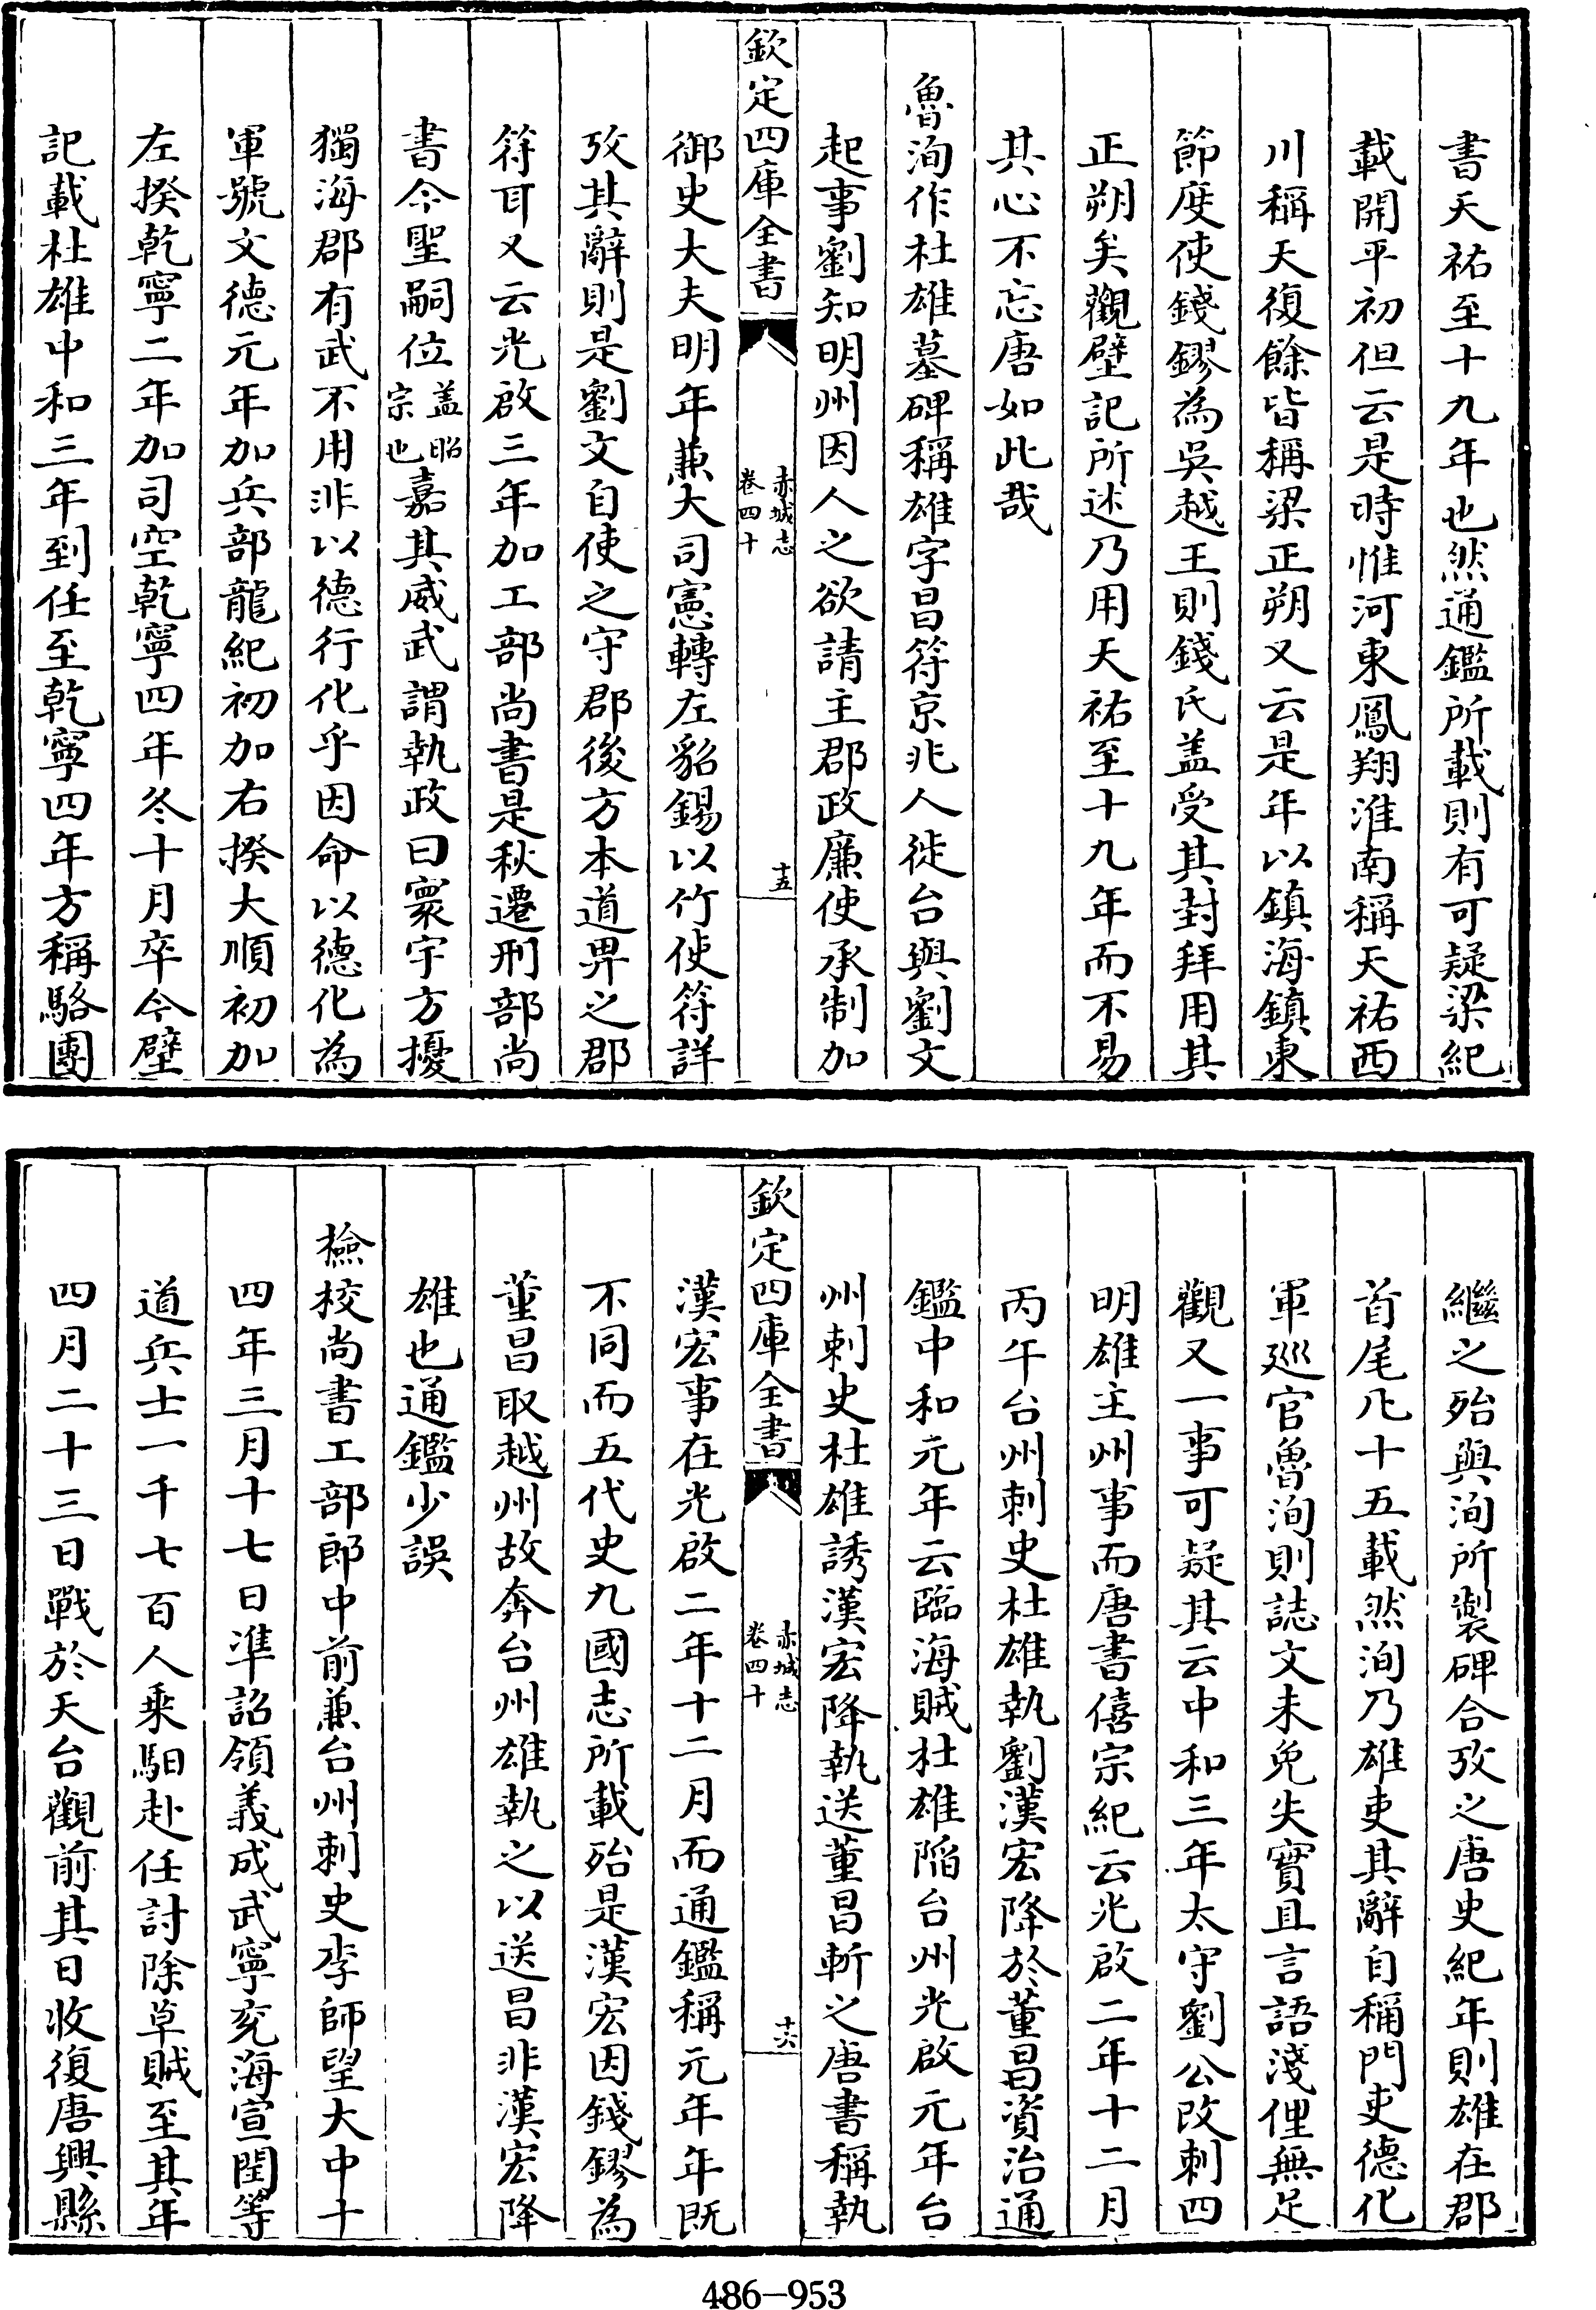 書天祐至十九年也然通鑑所載則有可疑梁紀
載開平初但云是時惟河東鳳翔淮南稱天祐西
川稱天復餘皆稱梁正朔又云是年以鎮海鎮東
節度使錢鏐為吳越王則錢氏盖受其封拜用其
正朔矣觀壁記所述乃用天祐至十九年而不易
其心不忘唐如此哉
魯洵作杜雄墓碑稱雄字昌符京兆人徙台與劉文
起事劉知明州因人之欲請主郡政廉使承制加
欽定四庫全書
赤城志
卷四十
十五
御史大夫明年兼大司憲轉左貂錫以竹使符詳
攷其辭則是劉文自使之守郡後方本道畀之郡
符耳又云光啟三年加工部尚書是秋遷刑部尚
書今聖嗣位盖昭宗也嘉其威武謂執政曰寰宇方擾
獨海郡有武不用非以德行化乎因命以德化為
軍號文德元年加兵部龍紀初加右揆大順初加
左揆乾寧二年加司空乾寧四年冬十月卒今壁
記載杜雄中和三年到任至乾寧四年方稱駱團
繼之殆與洵所製碑合攷之唐史紀年則雄在郡
首尾凡十五載然洵乃雄吏其辭自稱門吏德化
軍巡官魯洵則誌文未免失實且言語淺俚無足
觀又一事可疑其云中和三年太守劉公改刺四
明雄主州事而唐書僖宗紀云光啟二年十二月
丙午台州刺史杜雄執劉漢宏降於董昌資治通
鑑中和元年云臨海賊杜雄陷台州光啟元年台
州刺史杜雄誘漢宏降執送董昌斬之唐書稱執
欽定四庫全書
赤城志
卷四十
十六
漢宏事在光啟二年十二月而通鑑稱元年年既
不同而五代史九國志所載殆是漢宏因錢鏐為
董昌取越州故奔台州雄執之以送昌非漢宏降
雄也通鑑少誤
檢校尚書工部郎中前兼台州刺史李師望大中十
四年三月十七日準詔領義成武寧兗海宣閏等
道兵士一千七百人乘馹赴任討除草賊至其年
四月二十三日戰於天台觀前其日收復唐興縣
486-953